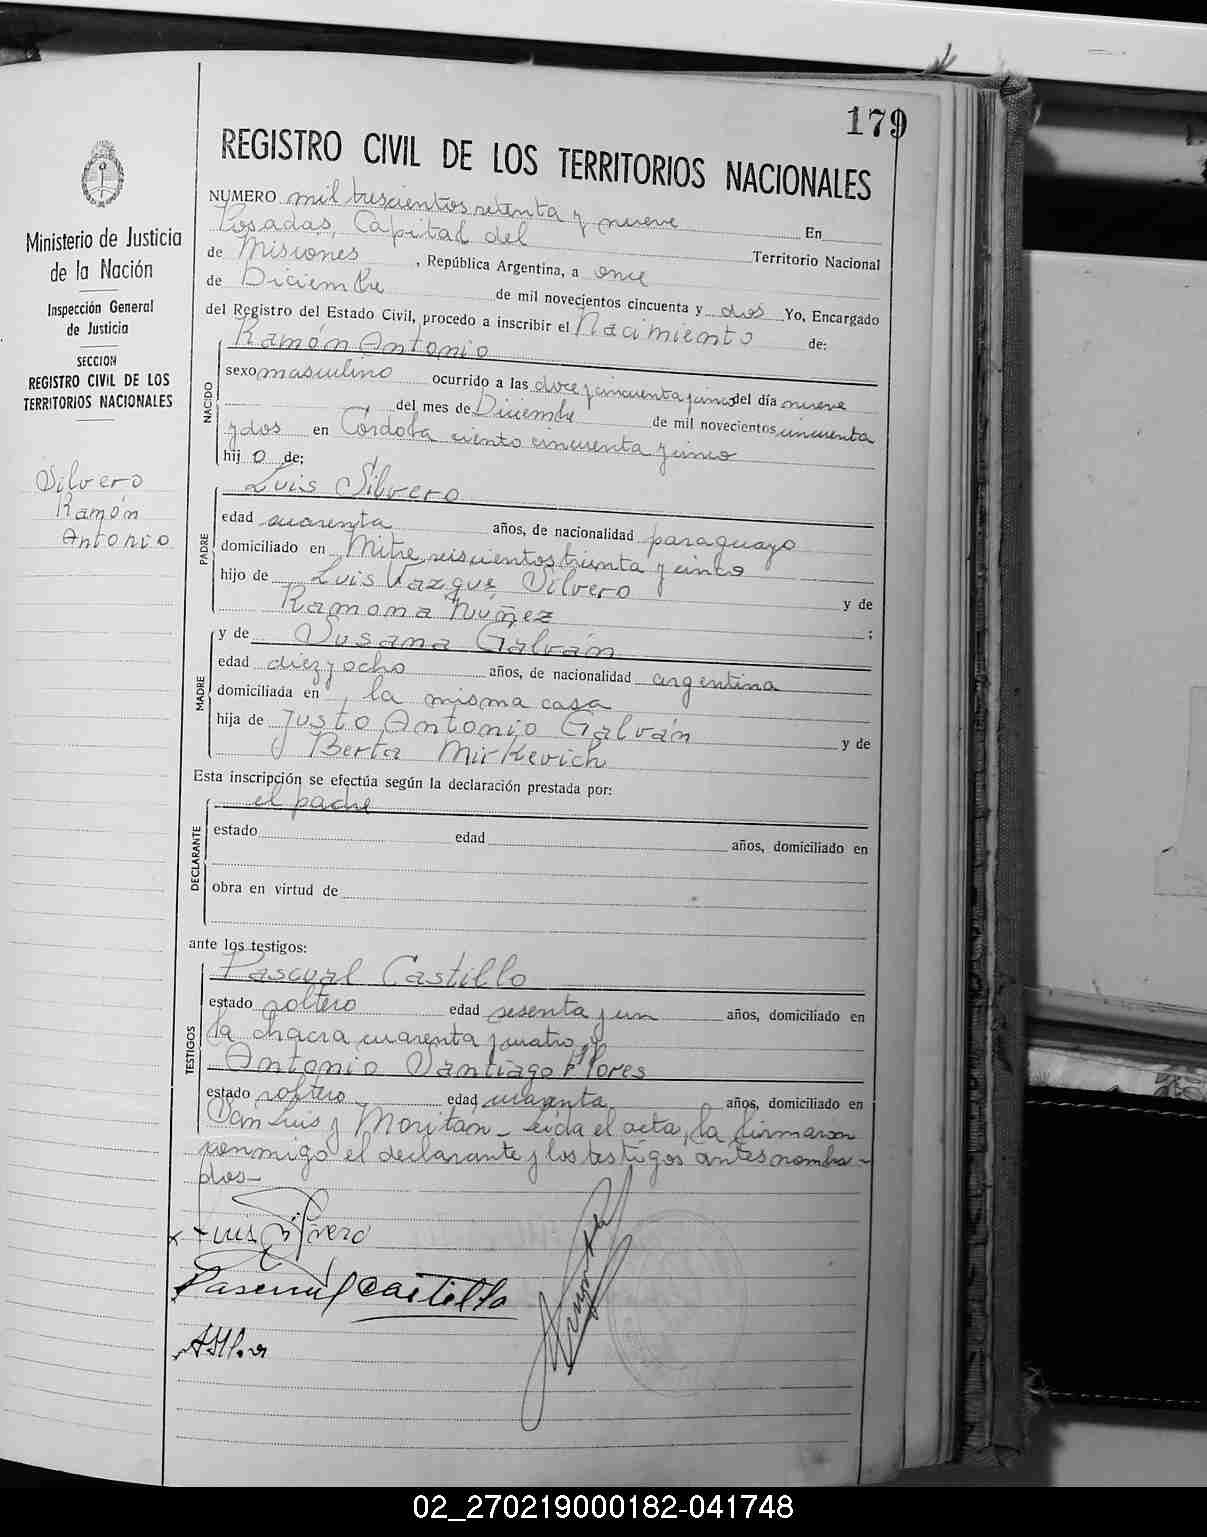 179
REGISTRO CIVIL DE LOS TERRITORIOS NACIONALES
Ministerio de Justicia
de la Nación
Inspección General
de Justicia
SECCION
REGISTRO CIVIL DE LOS
TERRITORIOS NACIONALES
Silvero
Ramón
Antonio
NUMERO mil trescientos setenta y nueve En
Posadas, Capital del Territorio Nacional
de Misiones, República Argentina, a once
de Diciembre de mil novecientos cincuenta y dos Yo, Encargado
del Registro del Estado Civil, procedo a inscribir el Nacimiento de:
Ramón Antonio
NACIDO
sexo masculino ocurrido a las doce y cincuenta y cinco del día nueve
del mes de Diciembre de mil novecientos cincuenta
y dos en Córdoba ciento cincuenta y cinco
hij o de;
Luis Silvero
PADRE
edad cuarenta años, de nacionalidad paraguayo
domiciliado en Mitre seiscientos treinta y cinco
hijo de Luis Vazquz Silvero y de
Ramona Núñez ;
y de Susana Galván
MADRE
edad diez y ocho años, de nacionalidad argentina
domiciliada en la misma casa
hija de Justo Antonio Galván y de
Berta Mirkevich
Esta inscripción se efectúa según la declaración prestada por:
el padre
DECLARANTE
estado edad años, domiciliado en
obra en virtud de
ante los testigos:
Pascual Castillo
TESTIGOS
estado soltero edad sesenta y un años, domiciliado en
la chacra cuarenta y cuatro y
Antonio Santiago Flores
estado soltero edad cuarenta años, domiciliado en
San Luis y Moritán - Leída el acta, la firmaron
conmigo el declarante y los testigos antes nombra-
dos-
Luis Silvero
Pascual Castillo
02_270219000182-041748